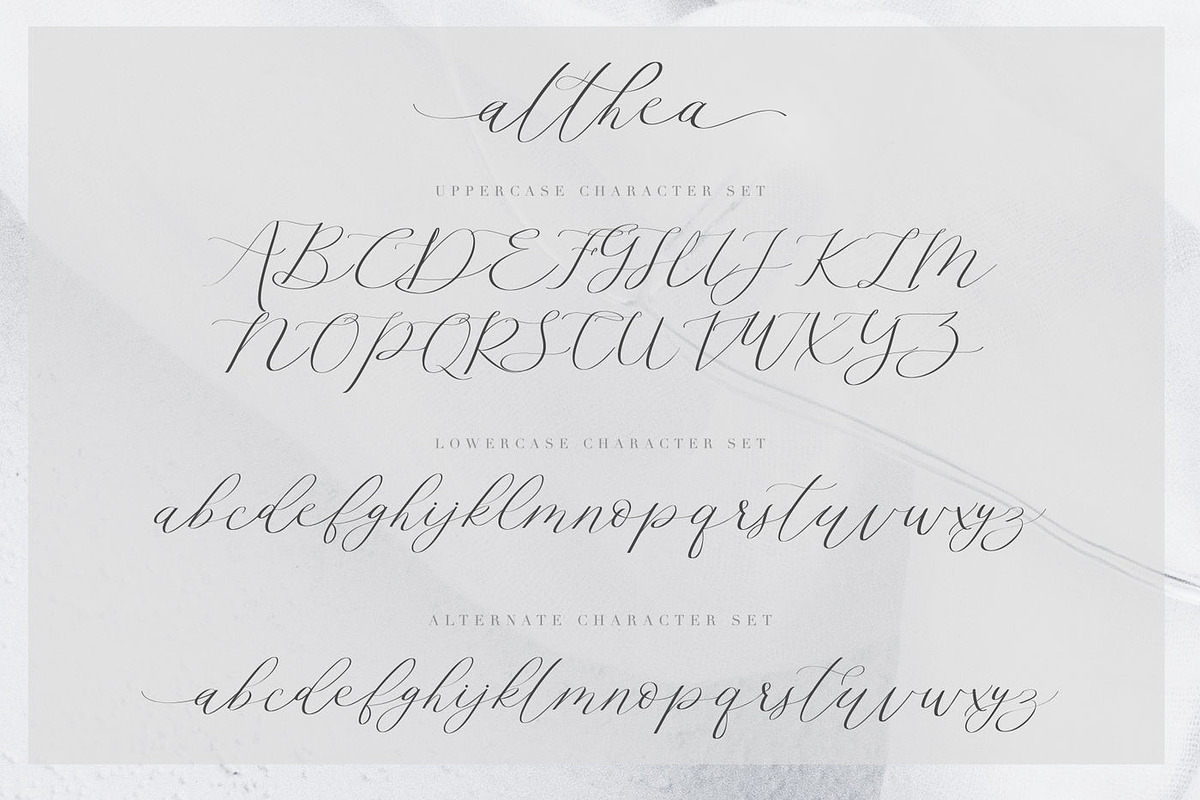 althea
UPPERCASE CHARACTER SET
ABCDEFGHIJ KLM
NOPQRSTU VWXYZ
LOWERCASE CHARACTER SET
abcdefghijklmnopqrstuvwxyz
ALTERNATE CHARACTER SET
abcdefghijklmnopqrstuvwxyz